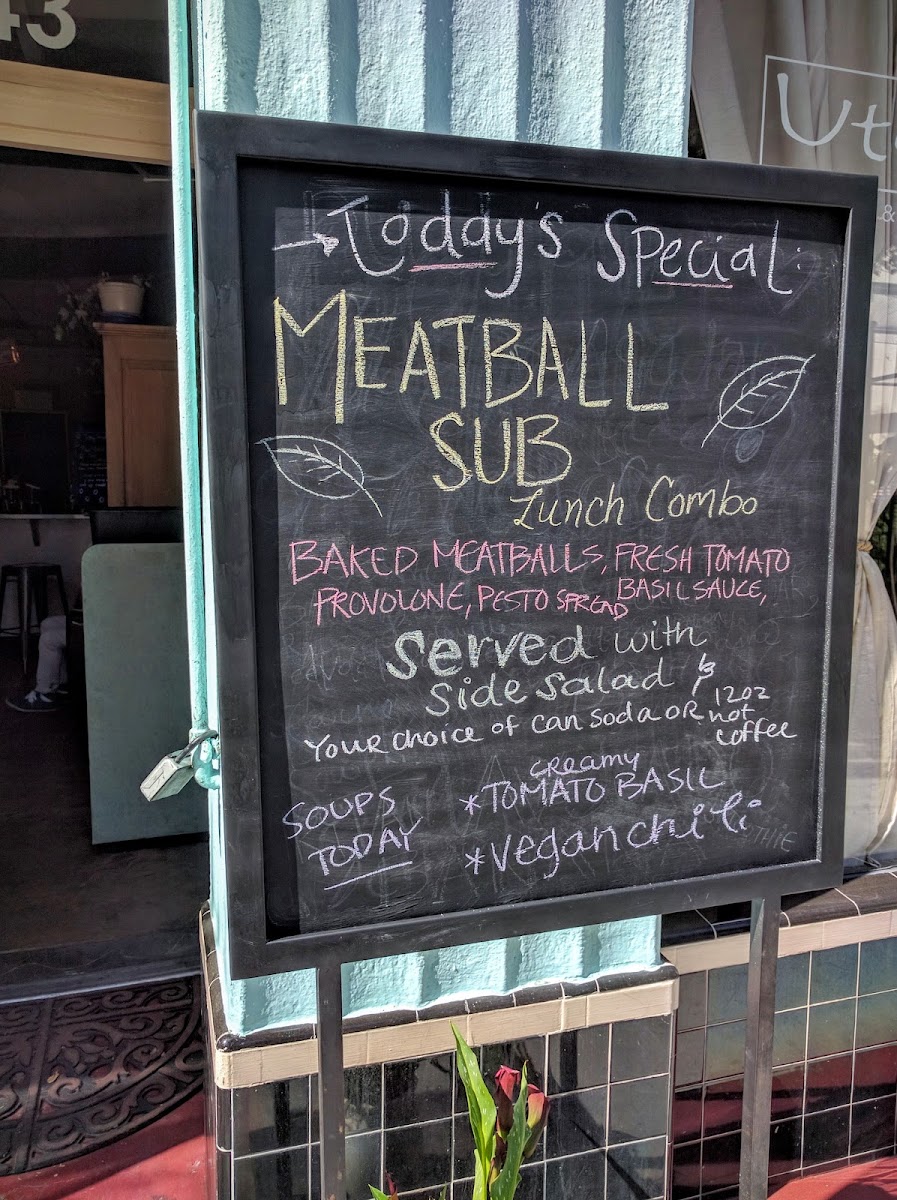 43
Ut
&
Toddy's Special:
MEATBALL
SUB
Lunch Combo
BAKED MEATBALLS, FRESH TOMATO
BASIL SAUCE,
PROVOLONE, PESTO SPREAD
Served with
side salad &
YOUR choice of can soda OR 12oz
hot
coffee
SOUPS
TODAY
creamy
*TOMATO BASIL
*vegan chili